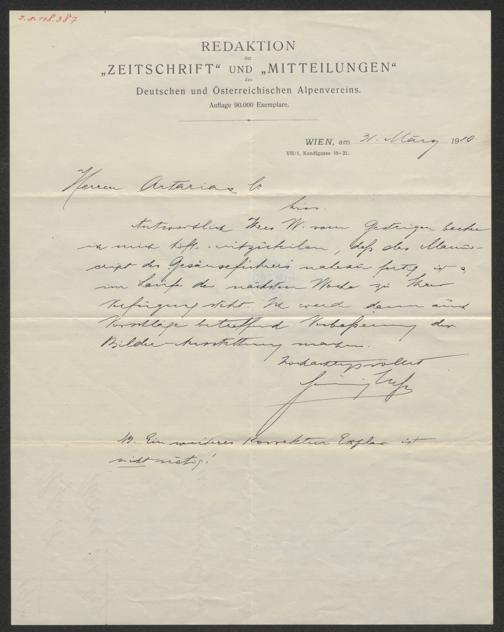 I.N. 118.387
REDAKTION
der
„ZEITSCHRIFT“ UND „MITTEILUNGEN“
des
Deutschen und Österreichischen Alpenvereins.
Auflage 90.000 Exemplare.
WIEN, am 31. März 1910
VII/1, Kandlgasse 19–21.
Herren Artaria & Co
hier.
Antwortlich Ihres W. vom Gestrigen beehre
ich mich höfl. mitzuteilen, daß das Manu-
script des Gesäuseführers nahezu fertig ist &
im Laufe der nächsten Woche zu Ihrer
Verfügung steht. Ich werde dann auch
Vorschläge betreffend Verbesserung der
Bilder-Ausstattung machen.
Hochachtungsvollst
NB. Ein weiteres Korrektur Explar ist
nicht nötig!